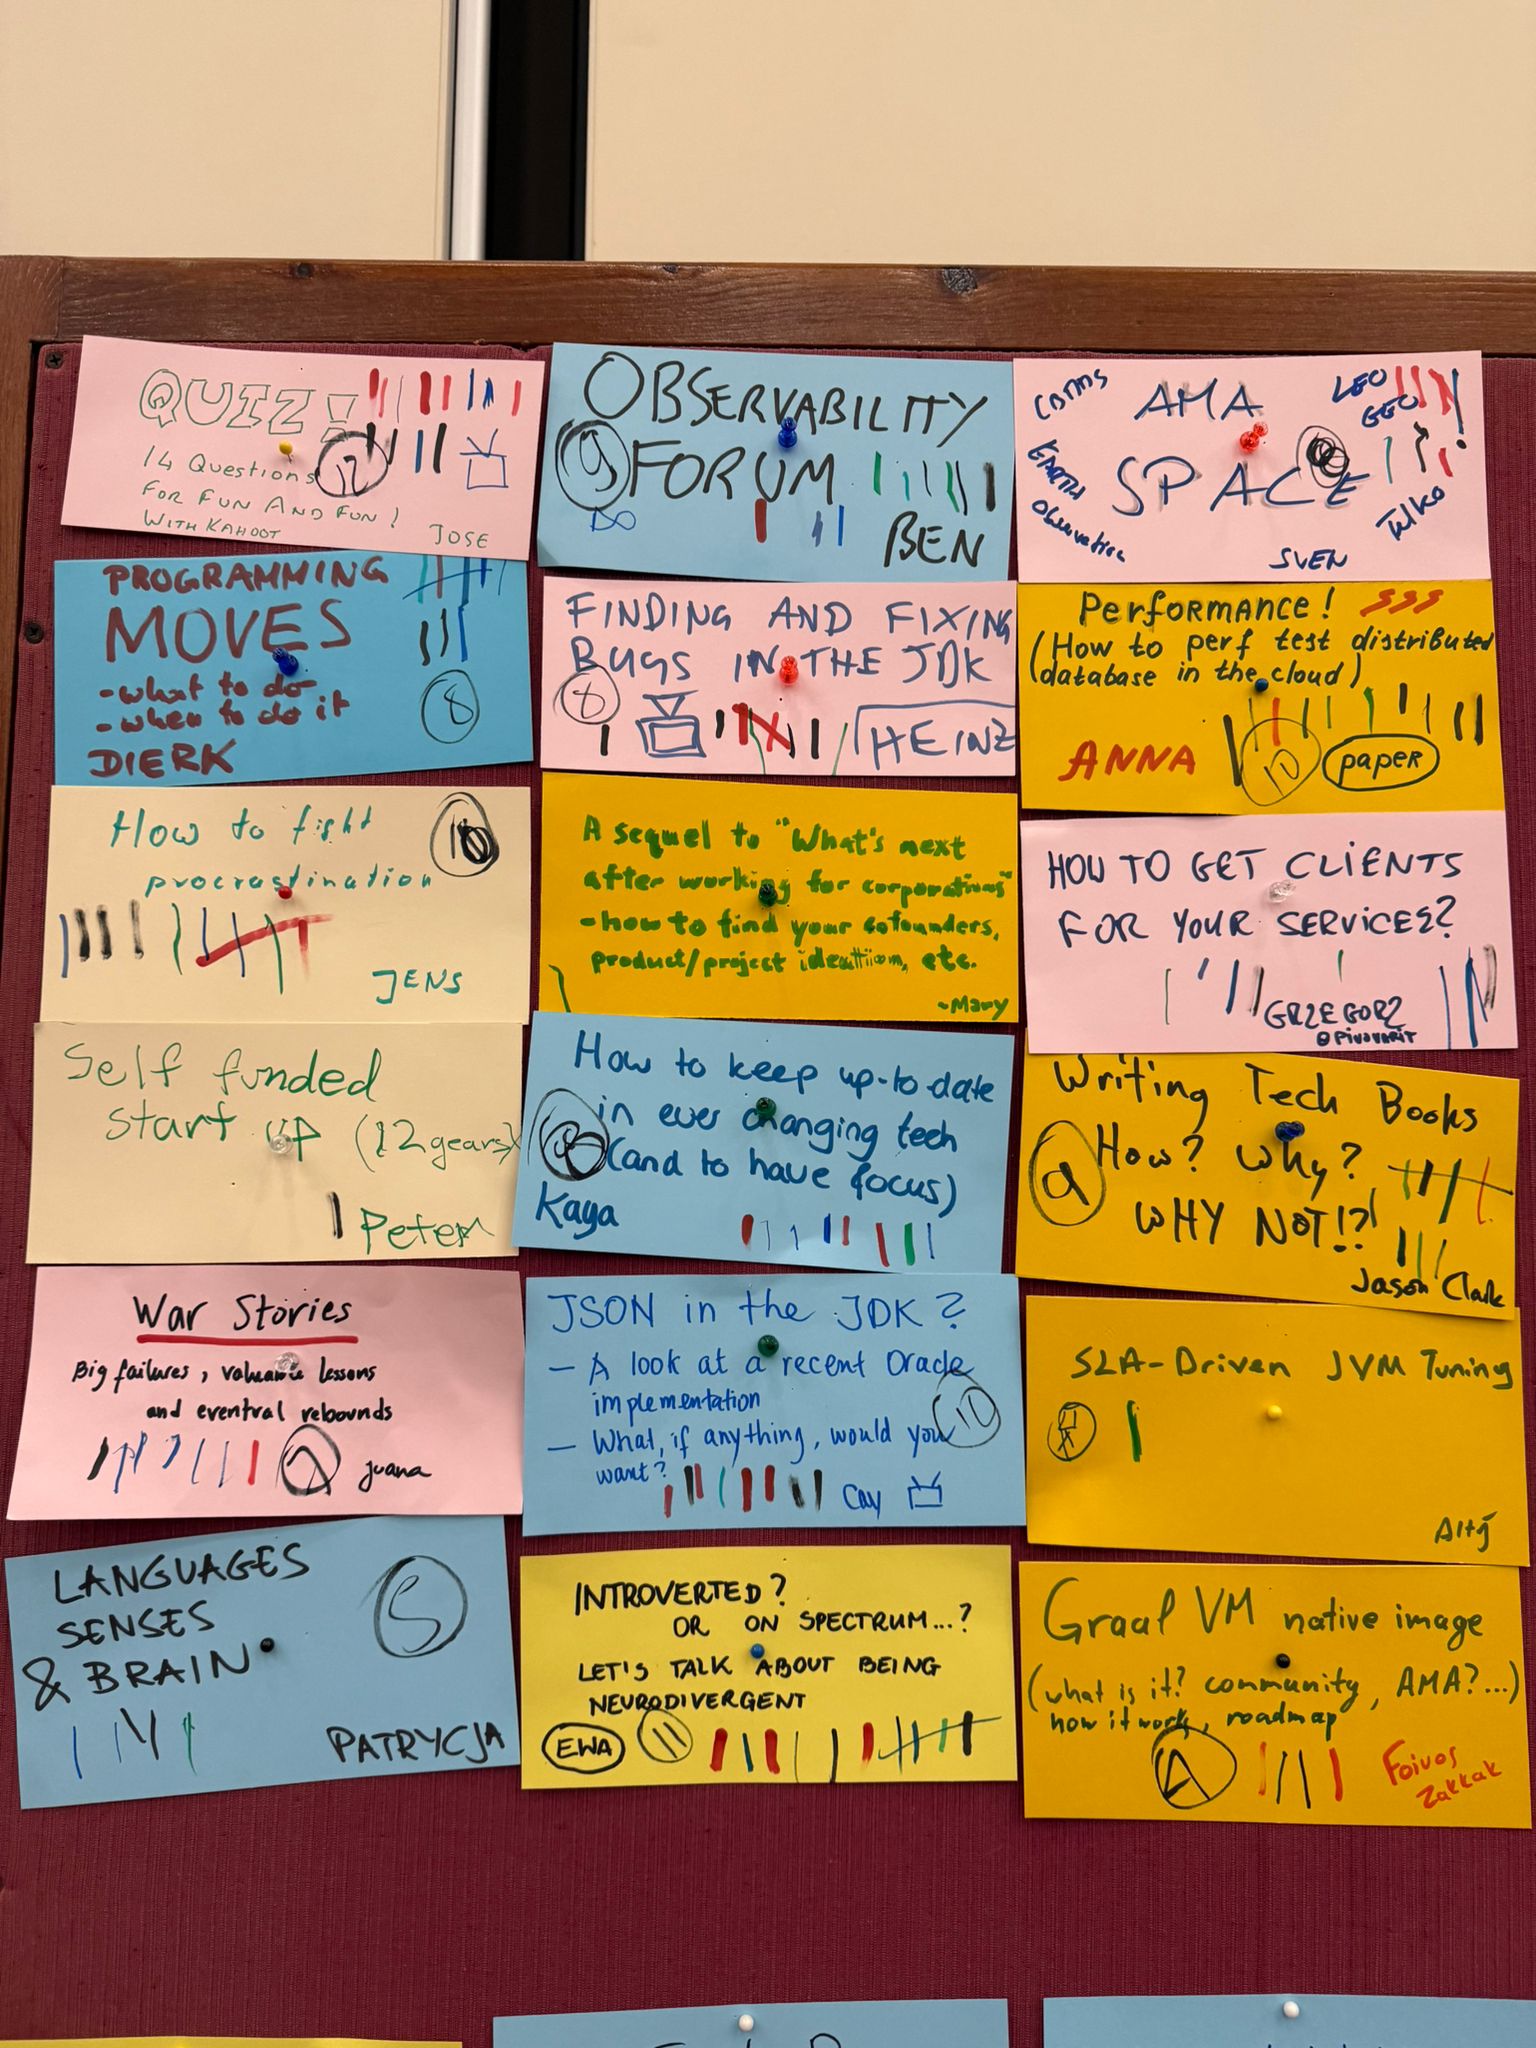 QUIZ!
14 Questions
FOR FUN AND FUN!
WITH KAHOOT
JOSE
12
OBSERVABILITY
FORUM
9
BEN
COTMS
EARTH
Observation
AMA
SPACE
LEO
GEO
SVEN
PROGRAMMING
MOVES
- what to do
- when to do it
DIERK
8
FINDING AND FIXING
BUGS IN THE JDK
8
HEINZ
Performance!
(How to perf test distributed
database in the cloud)
ANNA
10
paper
How to fight
procrastination
JENS
A sequel to "What's next
after working for corporations"
- how to find your cofounders,
product/project ideation, etc.
~Mary
HOW TO GET CLIENTS
FOR YOUR SERVICES?
GRZEGORZ
@pivovarit
Self funded
start up (12 years)
Peter
How to keep up-to-date
in ever changing tech
(and to have focus)
Kaya
Writing Tech Books
How? Why?
WHY NOT!?
9
Jason Clark
War Stories
Big failures, valuable lessons
and eventual rebounds
Juana
JSON in the JDK?
- A look at a recent Oracle
implementation
- What, if anything, would you
want?
10
Cay
SLA-Driven JVM Tuning
LANGUAGES
SENSES
& BRAIN
5
PATRYCJA
INTROVERTED?
OR ON SPECTRUM...?
LET'S TALK ABOUT BEING
NEURODIVERGENT
EWA
11
Graal VM native image
(what is it? community, AMA?...)
how it works, roadmap
Foivos
Zakkak